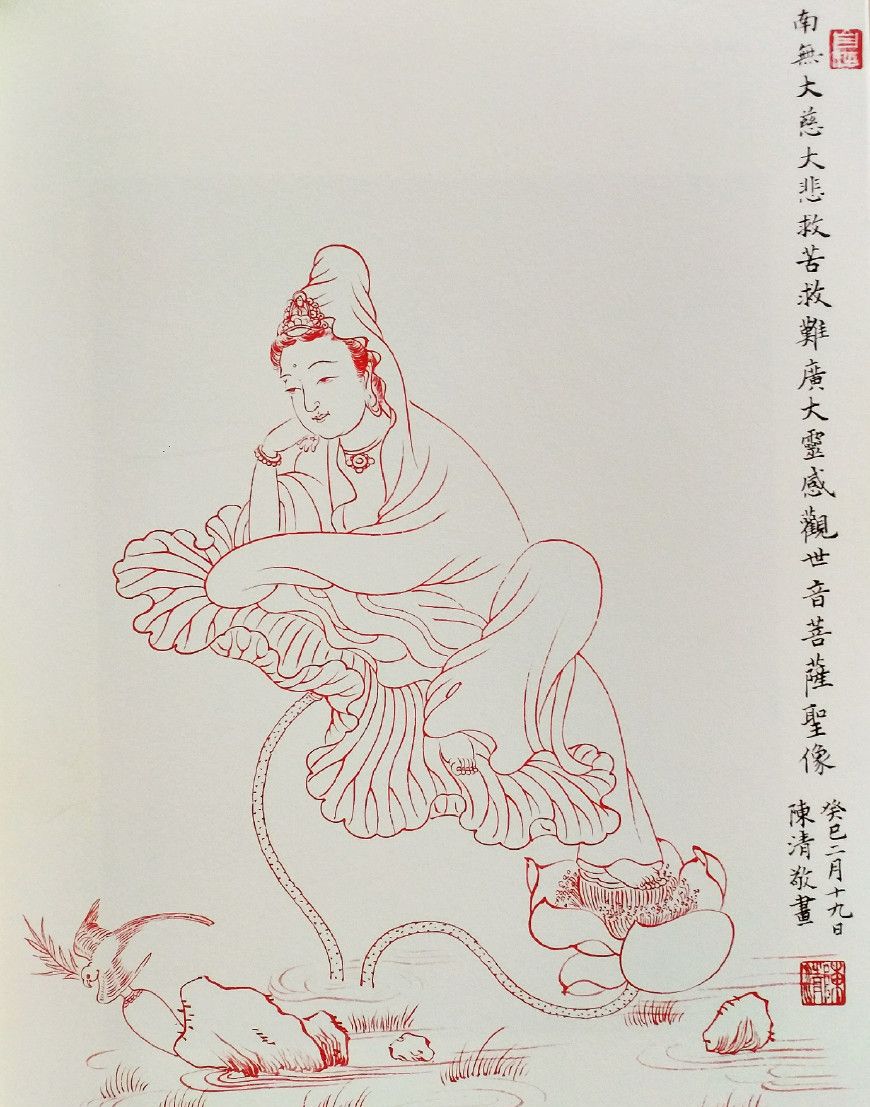 南無大慈大悲救苦救難廣大靈感觀世音菩薩聖像
癸巳二月十九日
陳清敬畫
陳清